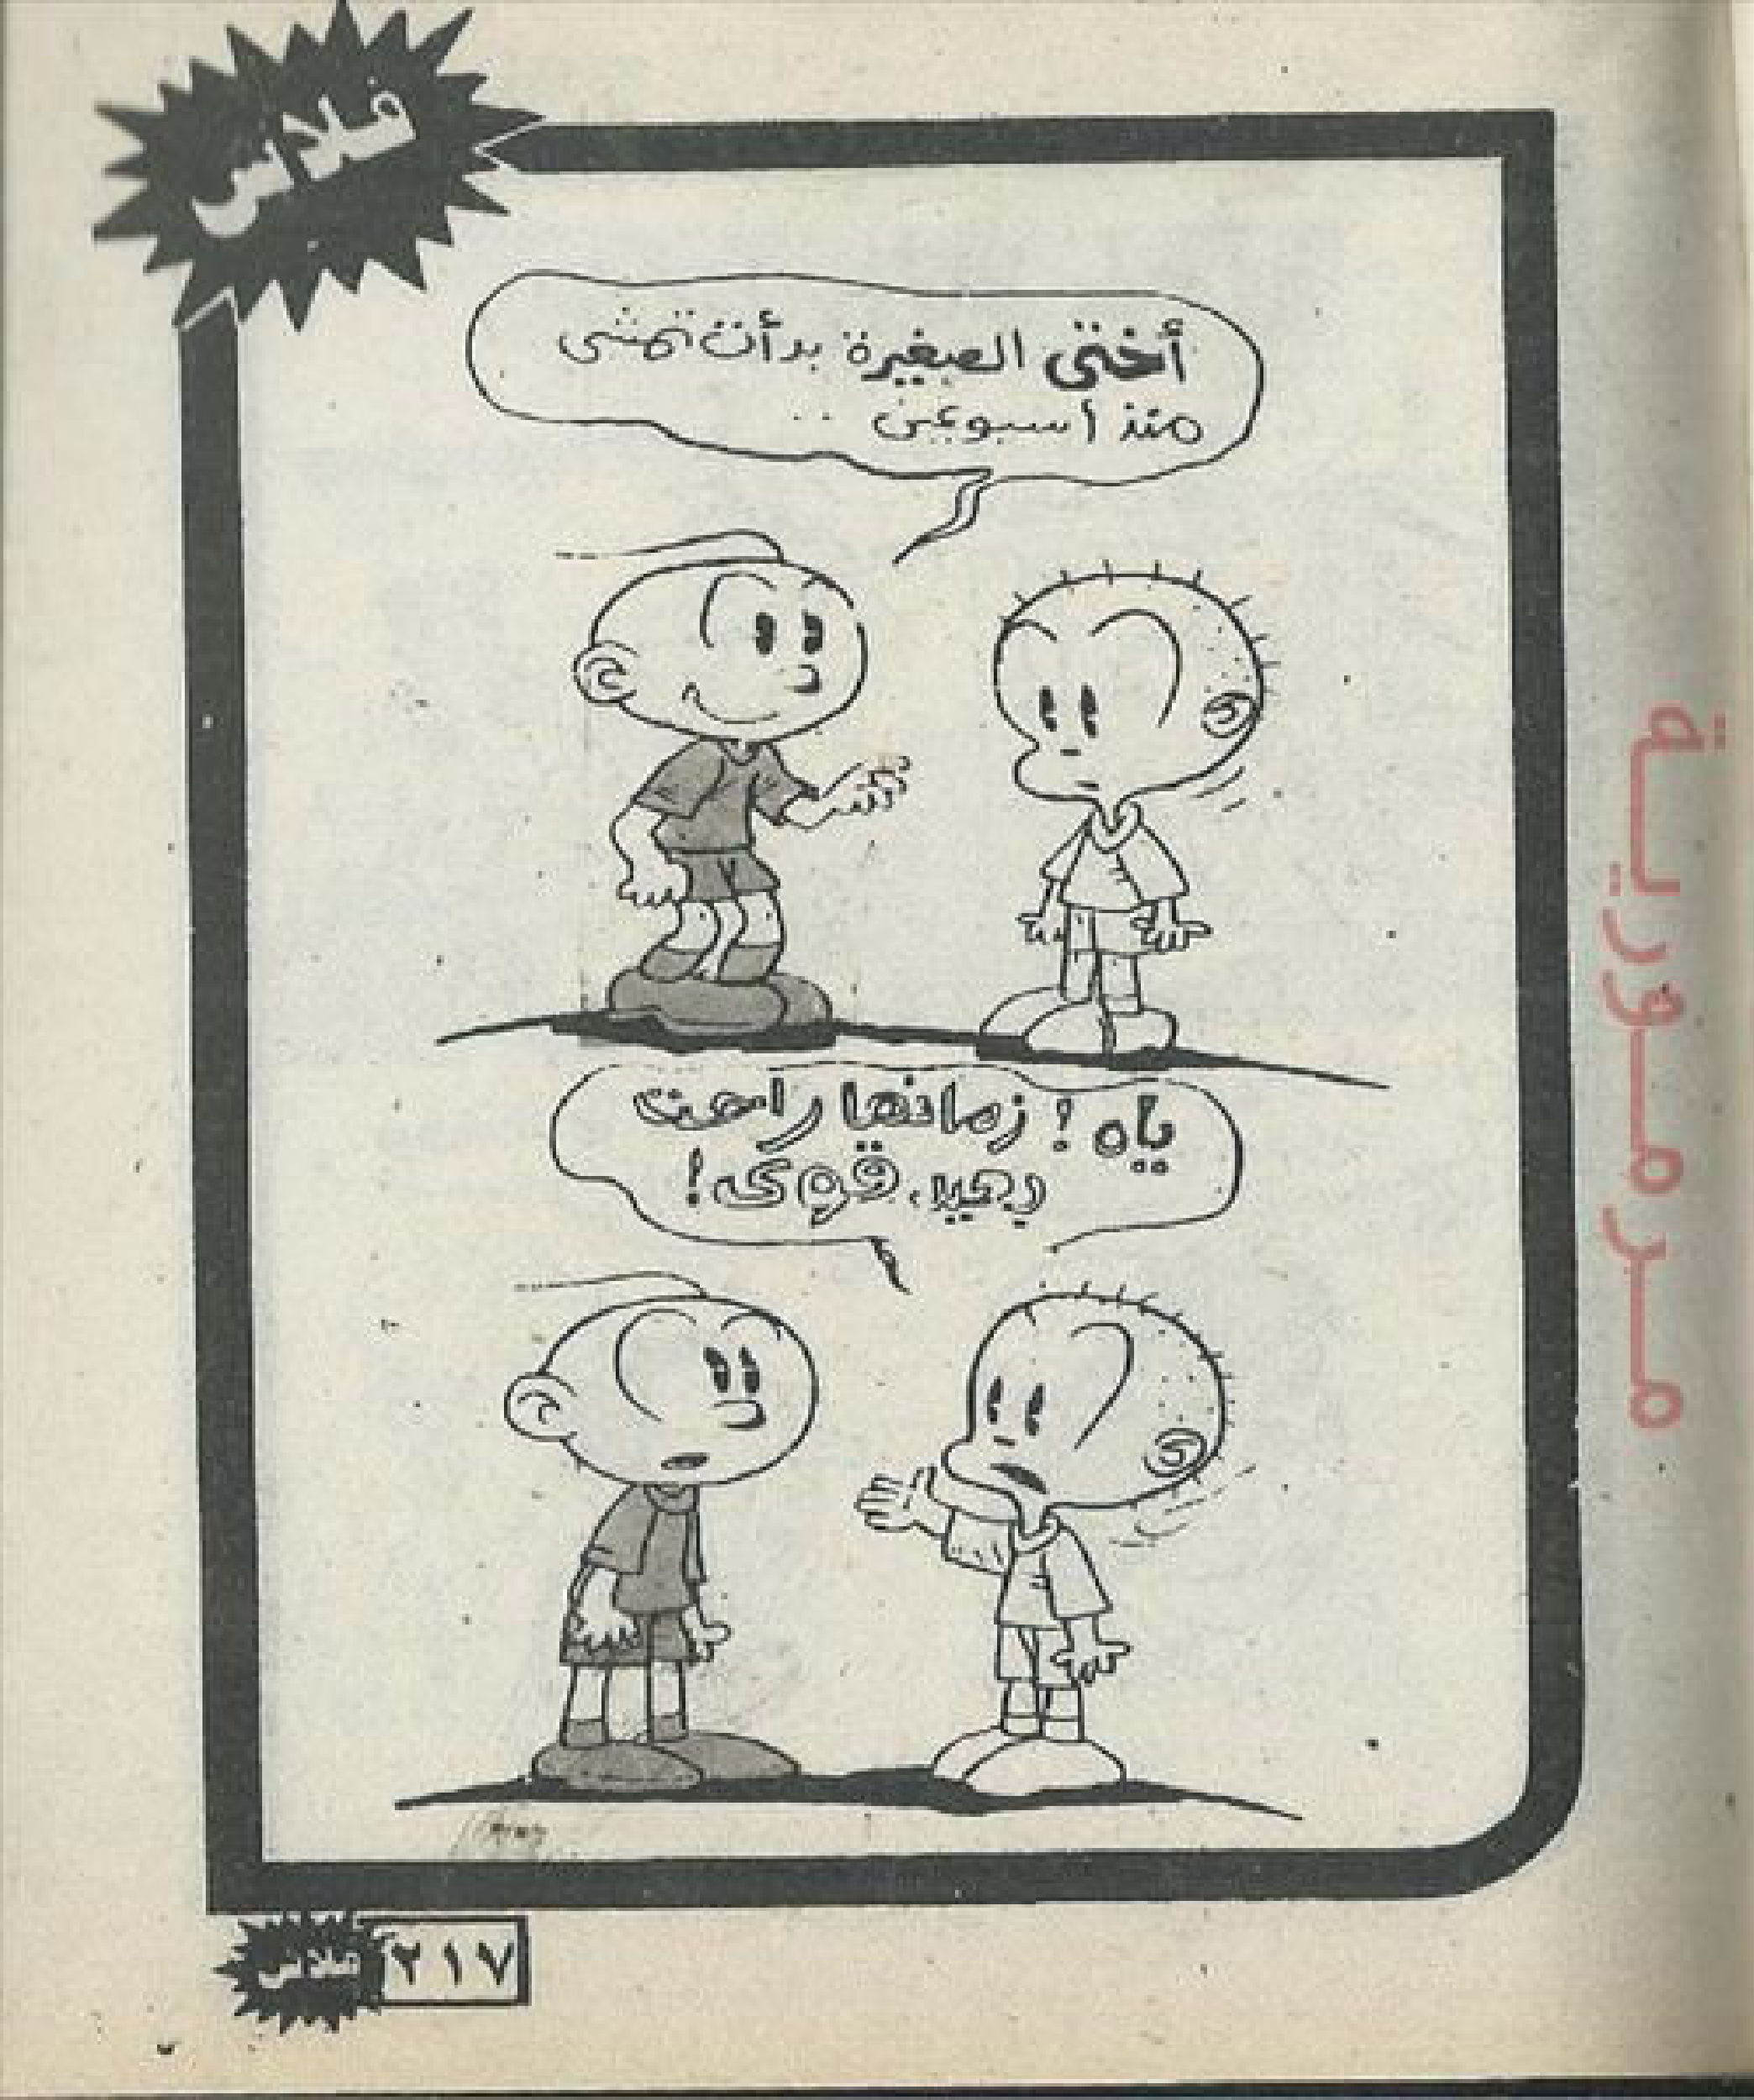 فلاش
أختي الصغيرة بدأت تمشى
منذ أسبوعين ..
ياه ! زمانها راحت
بعيد قوى !
مرمورية
٢١٧
فلاش